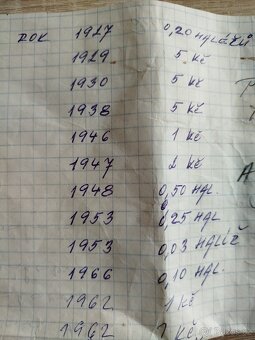 ROK 1927 0,20 HALÉŘŮ
1929 5 Kč
1930 5 Kč
1938 5 Kč
1946 1 Kč
1947 2 Kč
1948 0,50 HAL
1953 0,25 HAL
1953 0,03
1966 0,10 HAL.
1962 1 Kč
1962 1 Kč